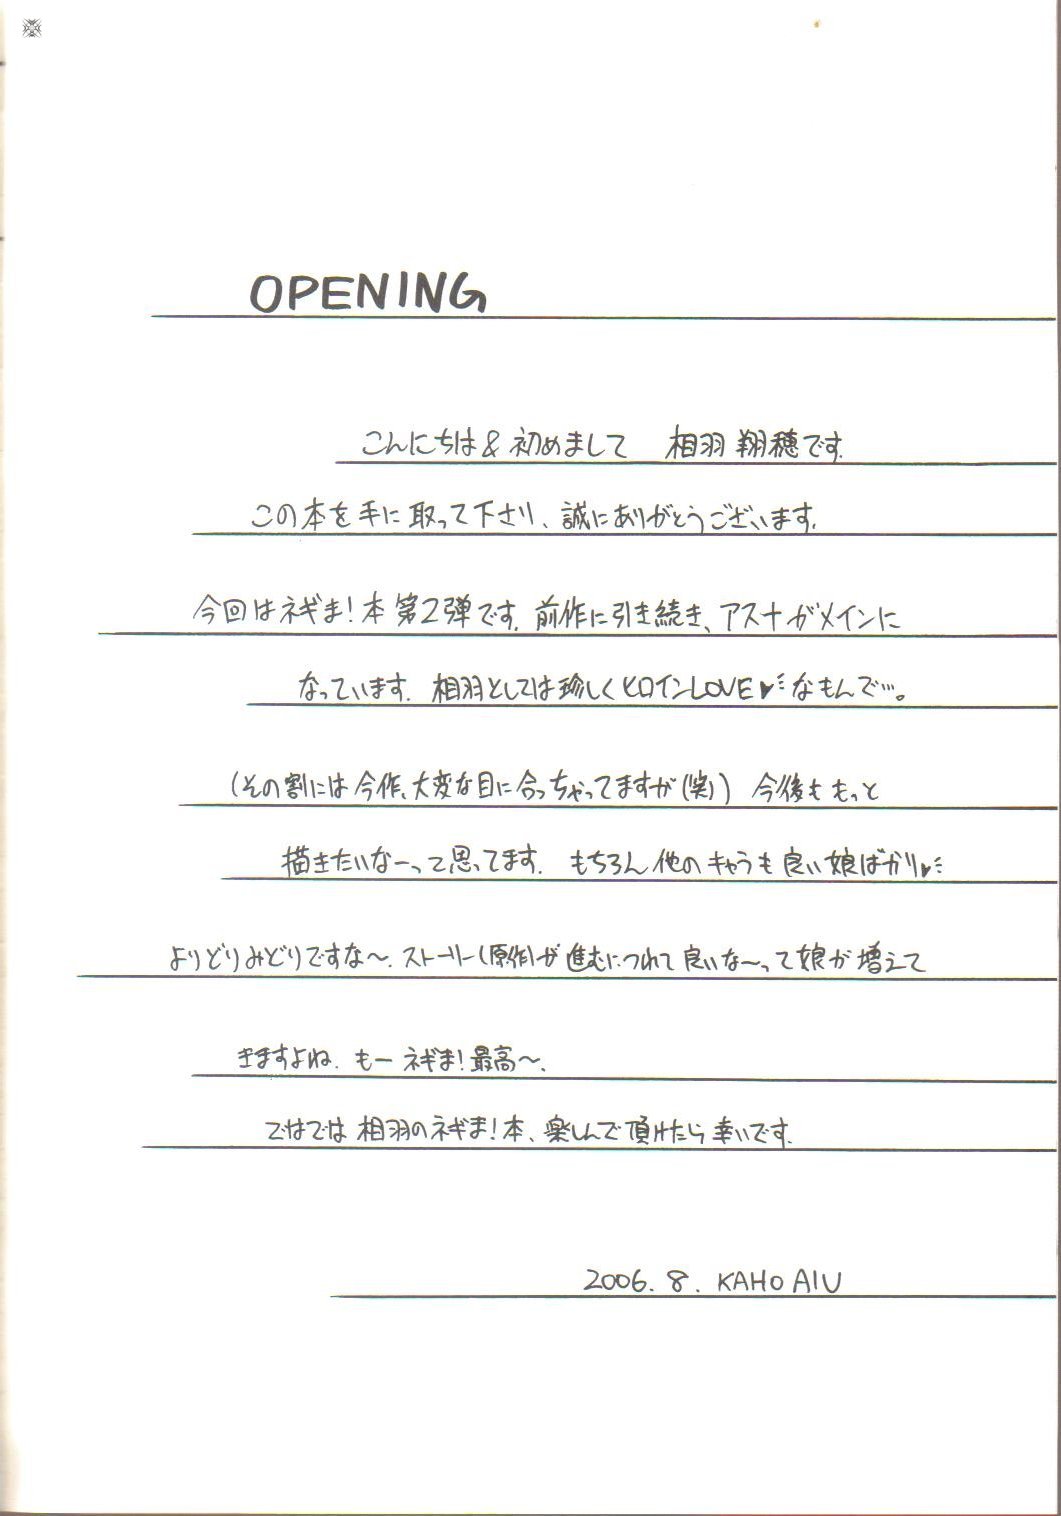 OPENING
こんにちは&初めまして 相羽 翔穂です.
この本を手に取って下さり、誠にありがとうございます.
今回はネギま!本 第2弾です. 前作に引き続き、アスナがメインに
なっています. 相羽としては珍しくヒロインLOVE♥なもんで…。
(その割には今作、大変な目に合っちゃってますが(笑)) 今後ももっと
描きたいなーって思ってます. もちろん他のキャラも良い娘ばかり♥
よりどりみどりですな〜. ストーリー(原作)が進むにつれて良いな〜って娘が増えて
きますよね. もーネギま!最高〜.
ではでは 相羽のネギま!本、楽しんで頂けたら幸いです.
2006. 8. KAHO AIU